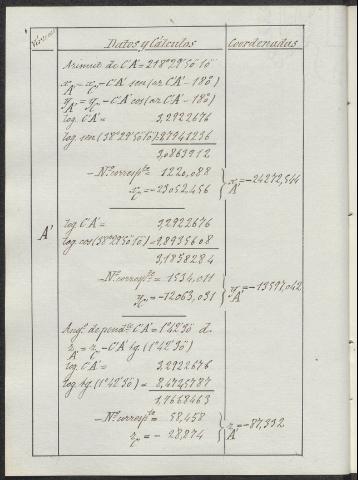 Vértices
Datos y Cálculos
Coordenadas
Azimut de CA' = 218°29'50"10
x A' = x c - CA' sen (az CA' - 180)
y A' = y c - CA' cos (az CA' - 180)
log. CA' = 3,2922676
log. sen (38°29'50"10) = 1,7941236
3,0863912
- Nº. corresp.te = 1220,088
x c = -23052,456
x A' = -24272,544
A'
log CA' = 3,2922676
log cos (38°29'50"10) = 9,8935608
3,1858284
- Nº. corresp.te = 1534,011
y c = -12063,031
y A' = -13597,042
Ang.º de pend.te CA' = 1°42'30" d.
z A' = z c - CA' tg. (1°42'30")
log. CA' = 3,2922676
log. tg. (1°42'30") = 8,4745787
1,7668463
- Nº. corresp.te = 58,458
z c = - 28,874
z A' = -87,332